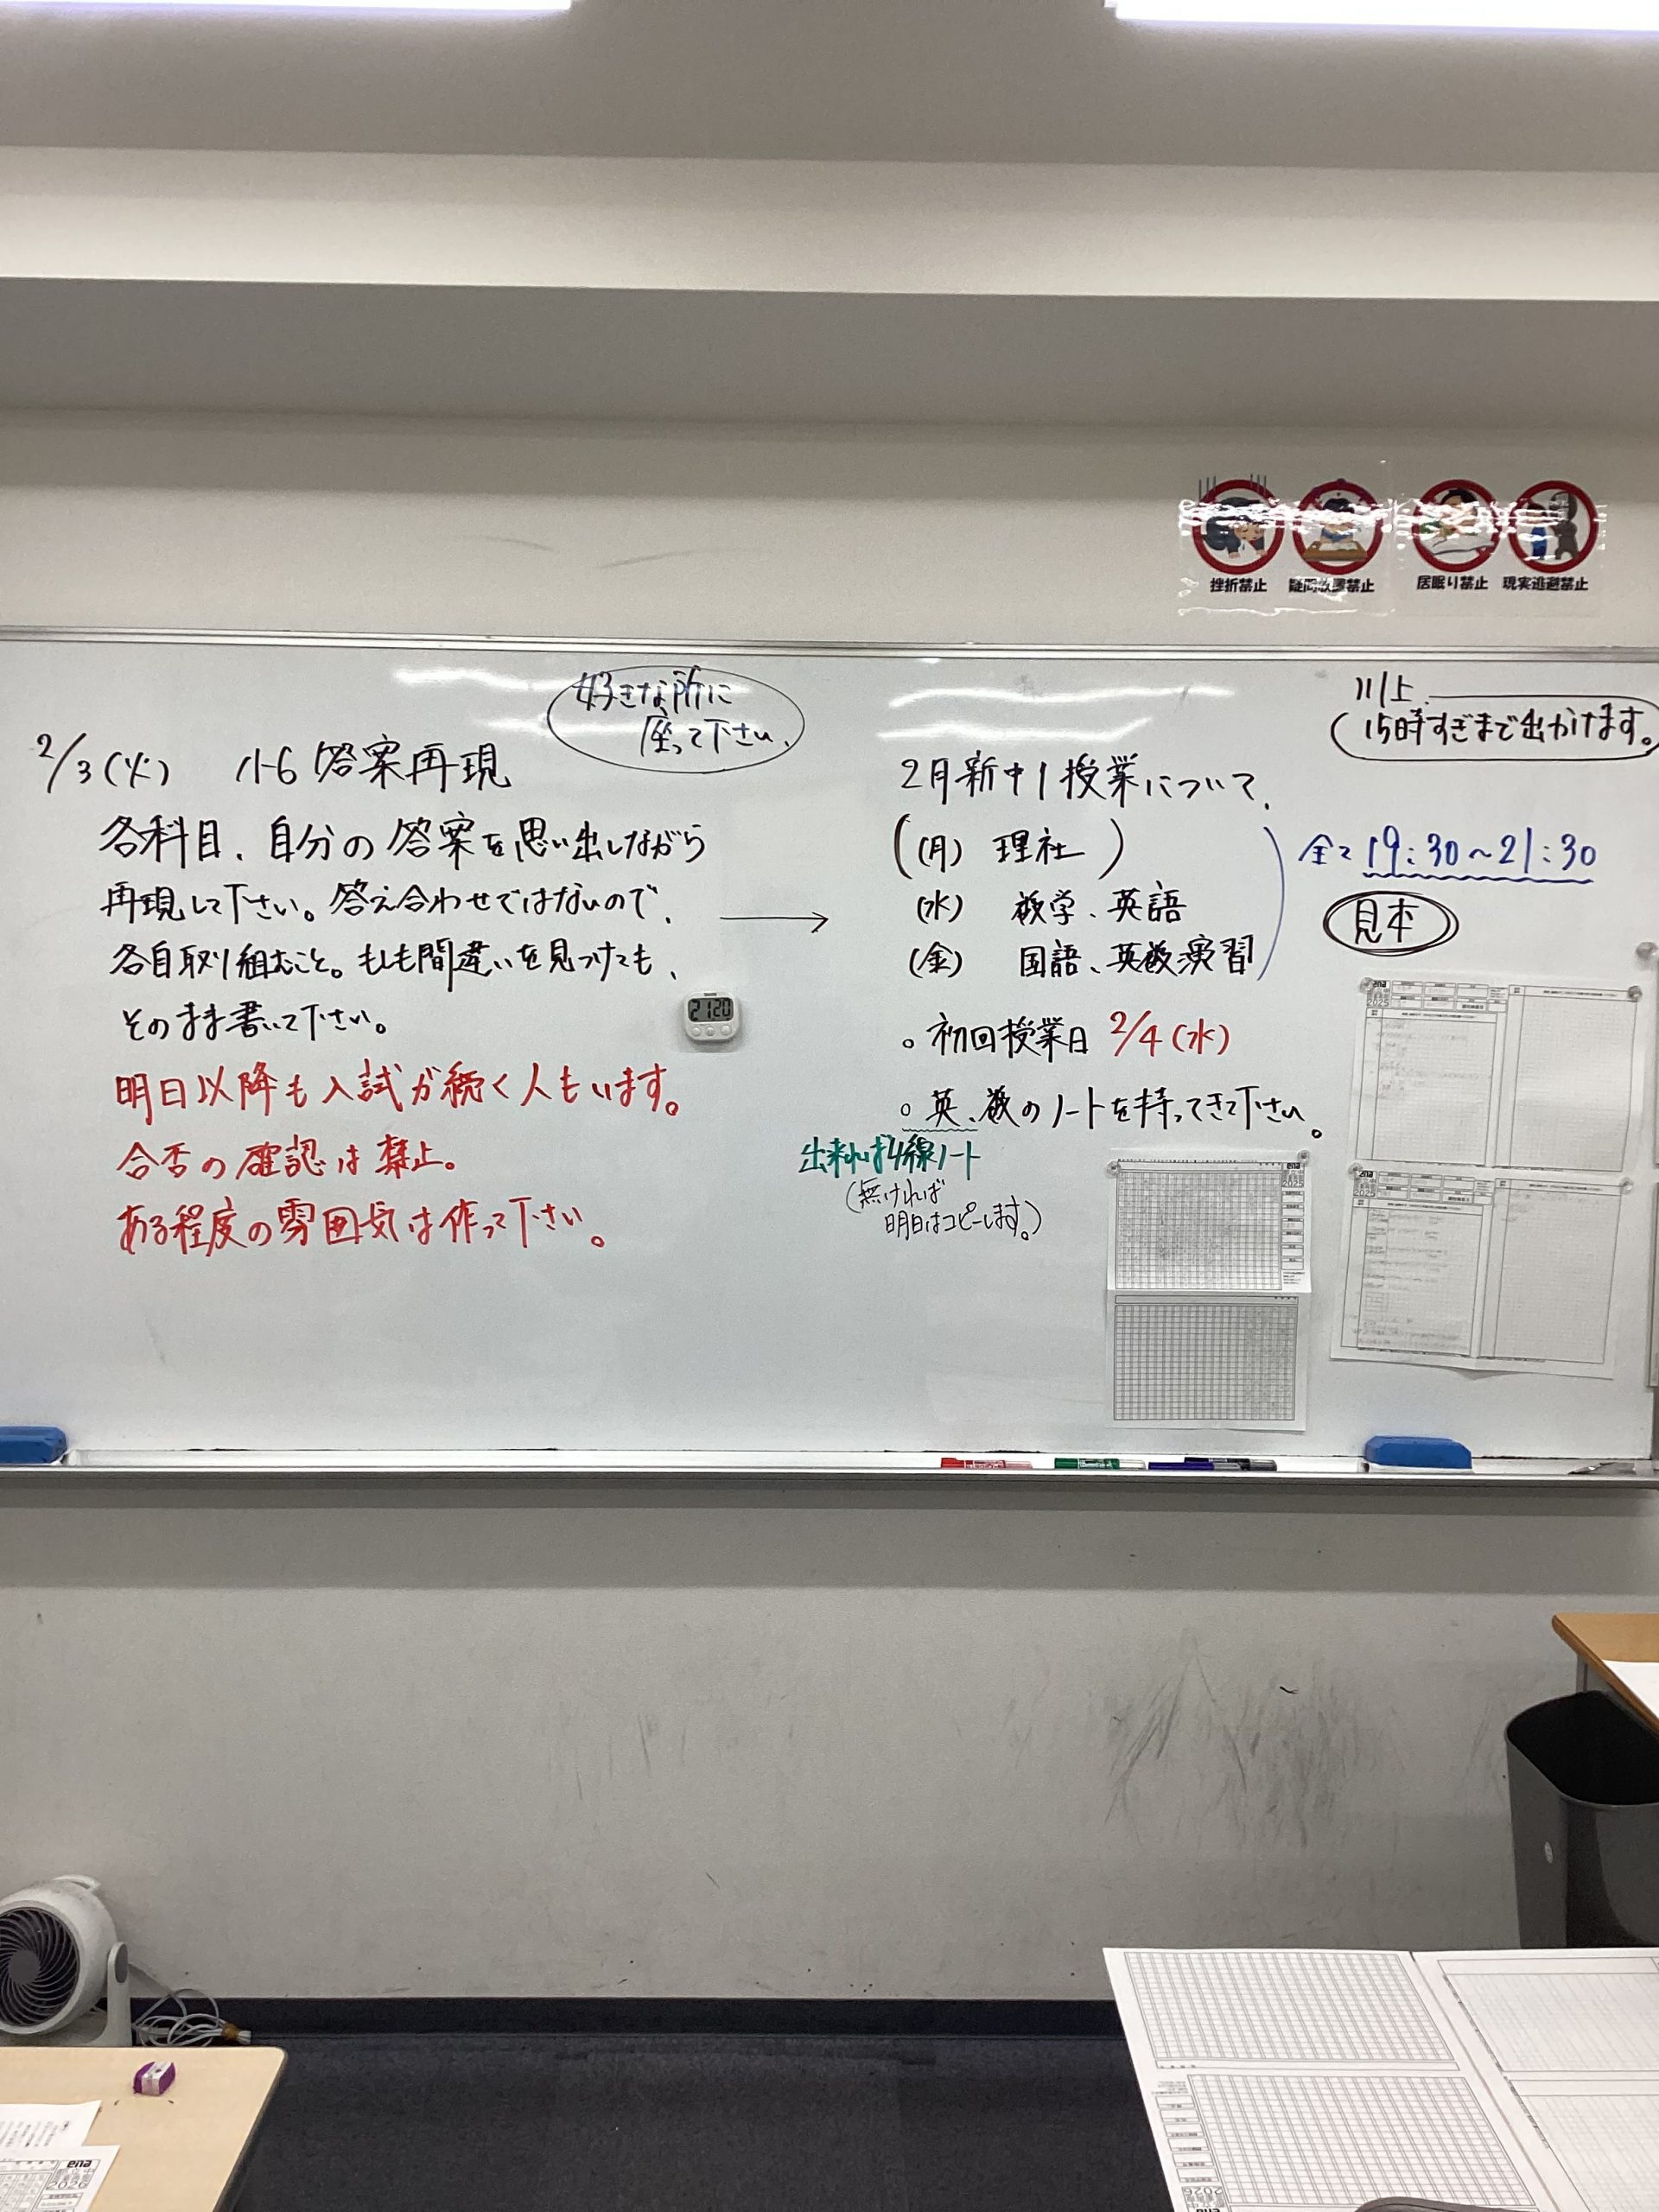 挫折禁止
疑問放置禁止
居眠り禁止
現実逃避禁止
好きな所に
座って下さい、
2/3(火) 小6 答案再現
各科目、自分の答案を思い出しながら
再現して下さい。答え合わせではないので、
各自取り組むこと。もしも間違いを見つけても、
そのまま書いて下さい。
明日以降も入試が続く人もいます。
合否の確認は禁止。
ある程度の雰囲気は作って下さい。
2120
→
川上
(15時すぎまで出かけます。
2月新中1授業について、
((月) 理社)
(水) 数学、英語
(金) 国語、英数演習
全て19:30~21:30
見本
。初回授業日 2/4(水)
。英、数のノートを持ってきて下さい。
出来れば4線ノート
(無ければ
明日はコピーします。)
ena
2025
ena
2025
ena
2025
ena
2026
2026